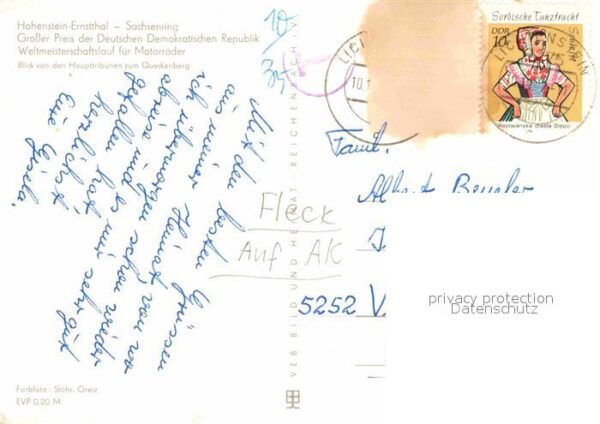 Hohenstein-Ernstthal — Sachsenring
Großer Preis der Deutschen Demokratischen Republik
Weltmeisterschaftslauf für Motorräder
Blick von den Haupttribünen zum Queckenberg
10
Mit den besten Grüssen
aus meiner Heimat, von wo
ich übermorgen schon wieder
abreise und es mir sehr gut
gefallen hat,
herzlichst
Eure Gisela.
Fleck
Auf AK
Farbfoto: Stöhr, Greiz
EVP 0.20 M
VEB BILD UND HEIMAT REICHENBACH
Sorbische Tanztracht
DDR
10
Schleife
LICHTENSTEIN
Famil.
Albert
5252
privacy protection
Datenschutz